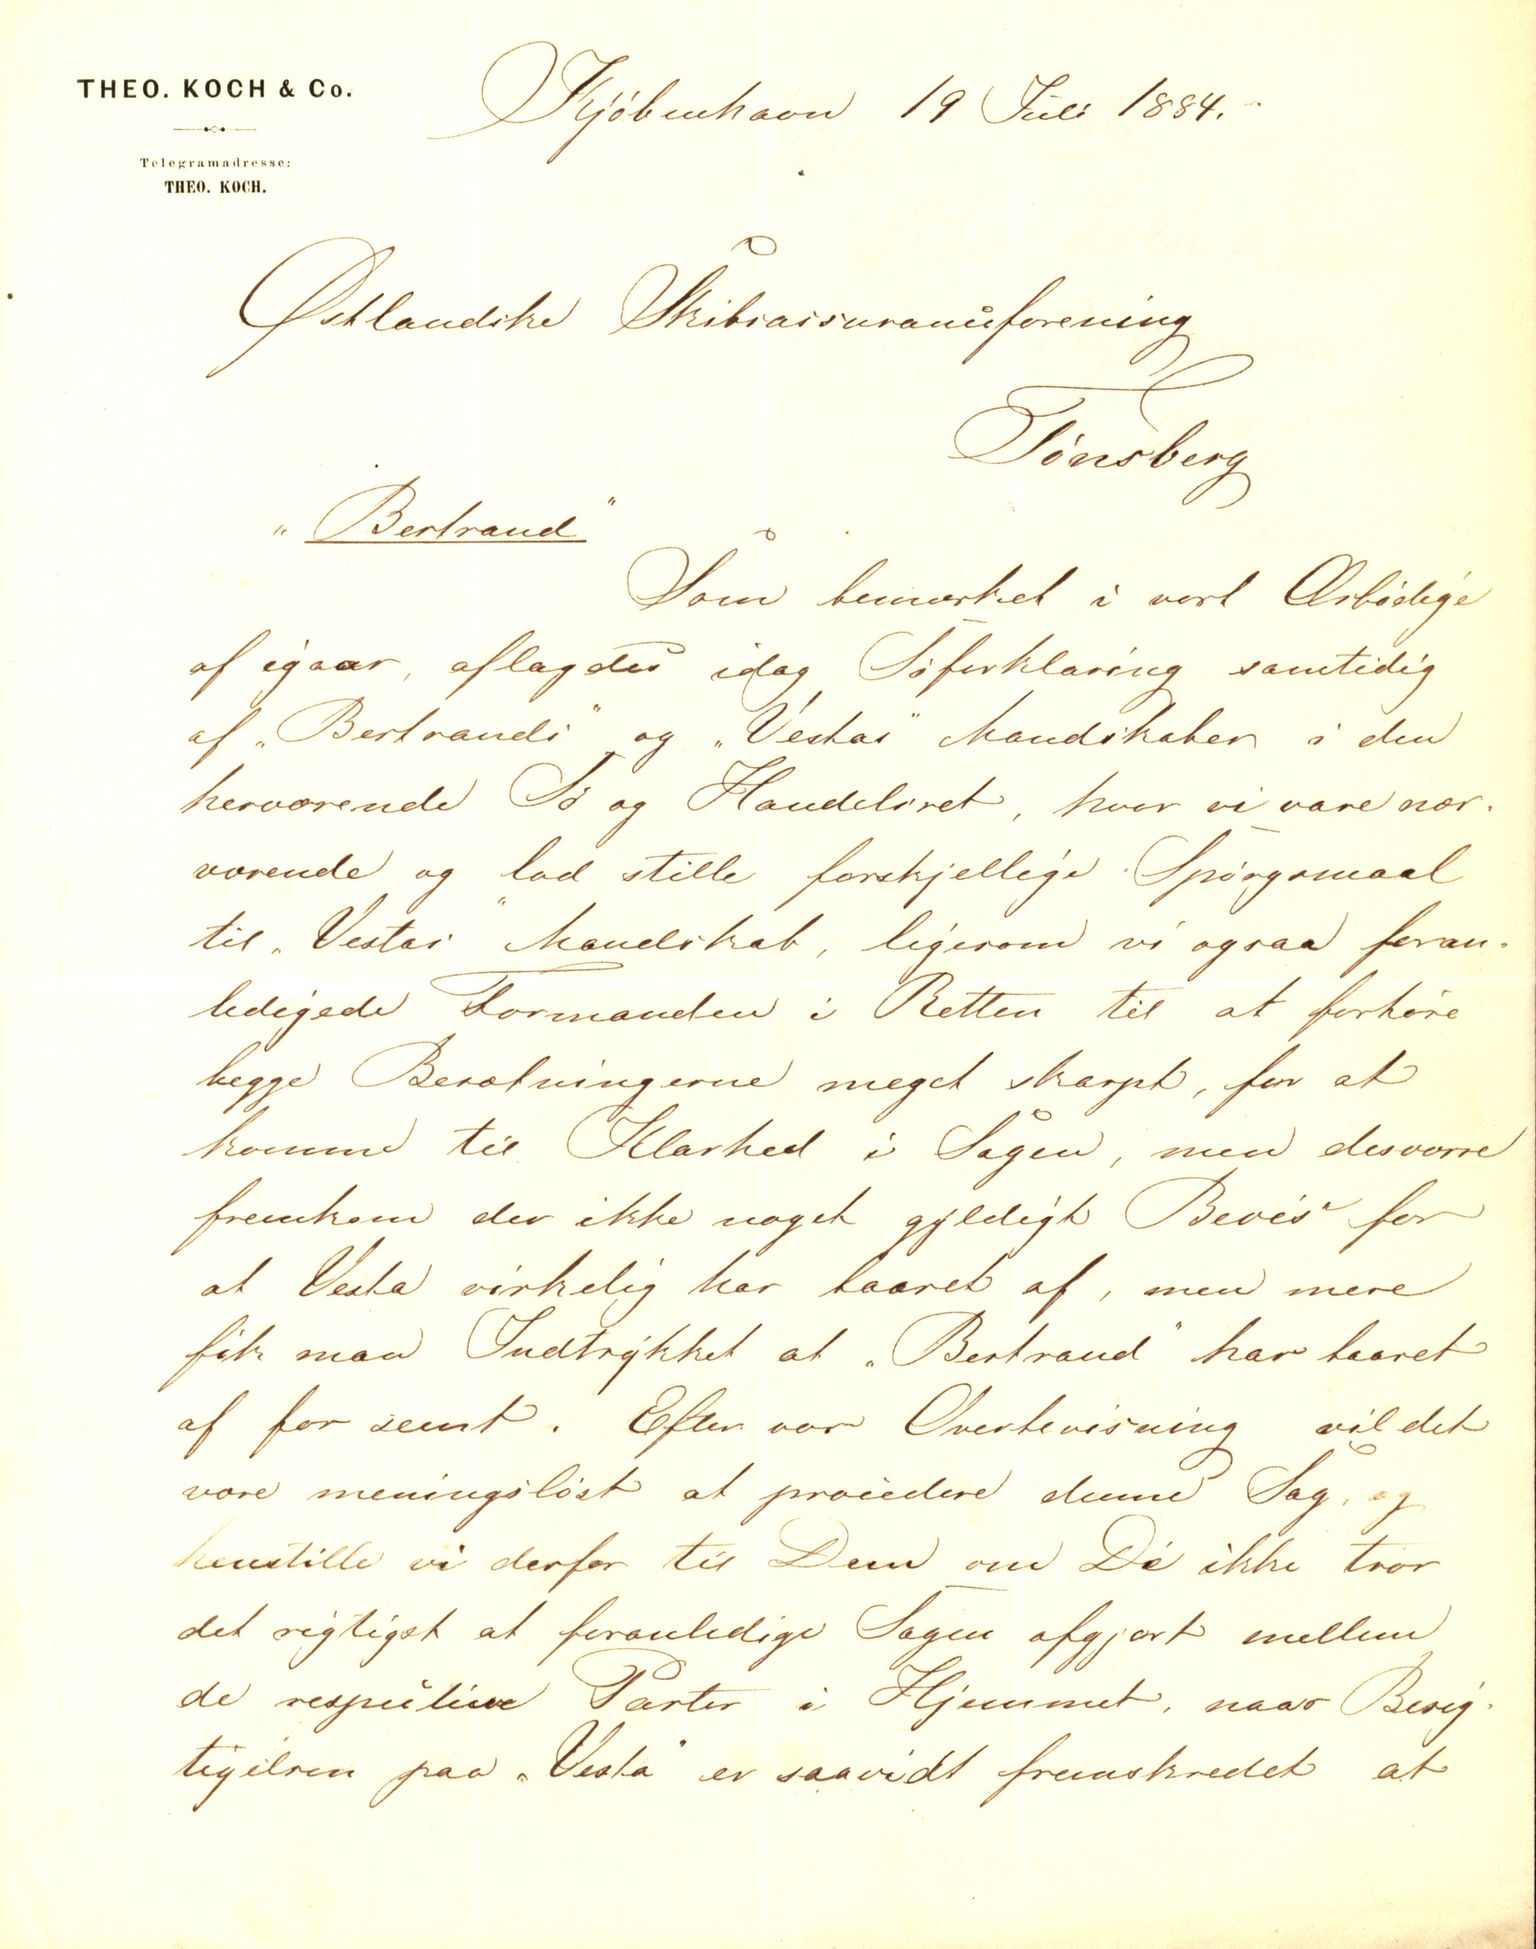 THEO. KOCH & Co.
Telegramadresse:
THEO. KOCH.
Kjøbenhavn 19 Juli 1884.
Østlandske Skibsassuranceforening
Tønsberg
„Bertrand"
Som bemærket i vort Ærbødige
af igaar, aflagdes idag Søforklaring samtidig
af „Bertrands" og „Vestas" Mandskaber i den
herværende Sø og Handelsret, hvor vi vare nær-
værende og lod stille forskjellige Spørgsmaal
til „Vestas" Mandskab, ligesom vi ogsaa foran-
ledigede Formanden i Retten til at forhøre
begge Besætningerne meget skarpt, for at
komme til Klarhed i Sagen, men desværre
fremkom der ikke noget gyldigt Bevis for
at Vesta virkelig har taaret af, men mere
fik man Indtrykket at „Bertrand" har taaret
af for sent. Efter vor Overbevisning vil det
være meningsløst at procedere denne Sag, og
henstille vi derfor til Dem om De ikke tror
det rigtigst at foranledige Sagen afgjort mellem
de respective Parter i Hjemmet, naar Besig-
tigelsen paa „Vesta" er saavidt fremskredet at